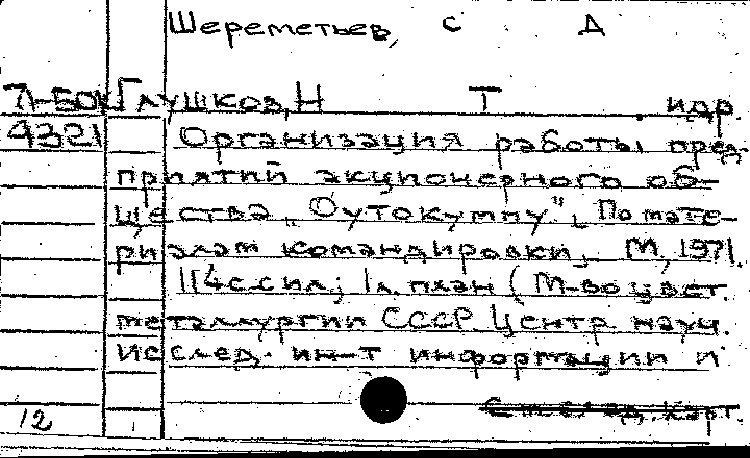 Шереметьев, С Д
71-БОК Глушков, Н Т и др.
4321 Организация работы пред-
приятий акционерного об-
щества „Оутокумпу". По мате-
риалам командировки. М, 1971.
114 с с ил; 1 л. план (М-во цвет.
металлургии СССР Центр науч.
исслед. ин-т информации и
См. след. карт.
12